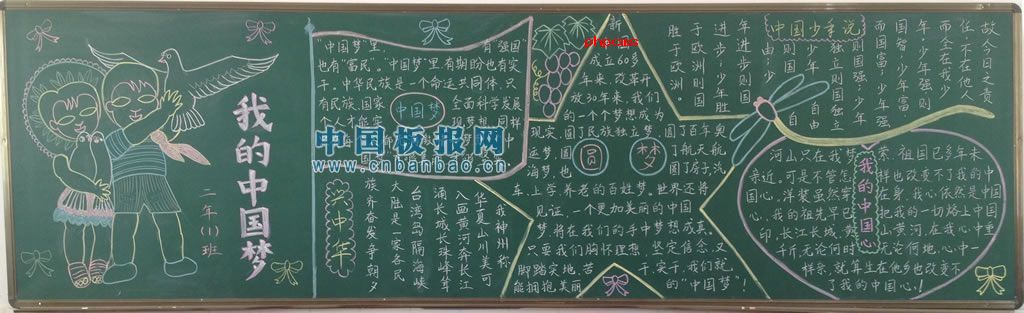 我的中国梦
二年(1)班
"中国梦"里,有"强国"
也有"富民"。"中国梦"里有期盼也有实
干。中华民族是一个命运共同体,只
有民族、国家
全面科学发展
个人才能实
中国梦
中国板报网
www.cnbanbao.cn
兴中华
我神州称
华夏山川美可
入画黄河奔长江
涌长城长珠峰耸
台湾岛隔海峡
大陆是一家各民
族齐奋发争朝夕
新
成立60多
年来,改革开
放30年来,我们
的一个个梦想成为
现实,圆了民族独立梦,圆了百年奥
运梦,圆
了航天航
海梦,也
圆了房子、汽
车、上学养老的百姓梦。世界还将
见证,一个更加美丽的中国
梦,将在我们的手中梦想成真。
只要我们胸怀理想、坚定信念,又
脚踏实地、苦干、实干,我们就
能拥抱美丽的"中国梦"!
圆
梦
中国少年说
故今日之责
任,不在他人,
而全在我少
年。少年强则
国智,少年富
而国富,少年强
则国强,少年
独立则国独立
少年自由
则国
自由,少
年进步则国
进步,少年胜
于欧洲,则国
胜于欧洲。
我的中国心
河山只在我梦萦,祖国已多年未
亲近。可是不管怎样也改变不了我的中
国心。洋装虽然穿在身,我心依然是中国
心,我的祖先早已把我的一切烙上中国
印。长江长城,黄山黄河,在我心中重
千斤,无论何时无论何地,心中一
样亲,就算生在他乡也改变不
了我的中国心!